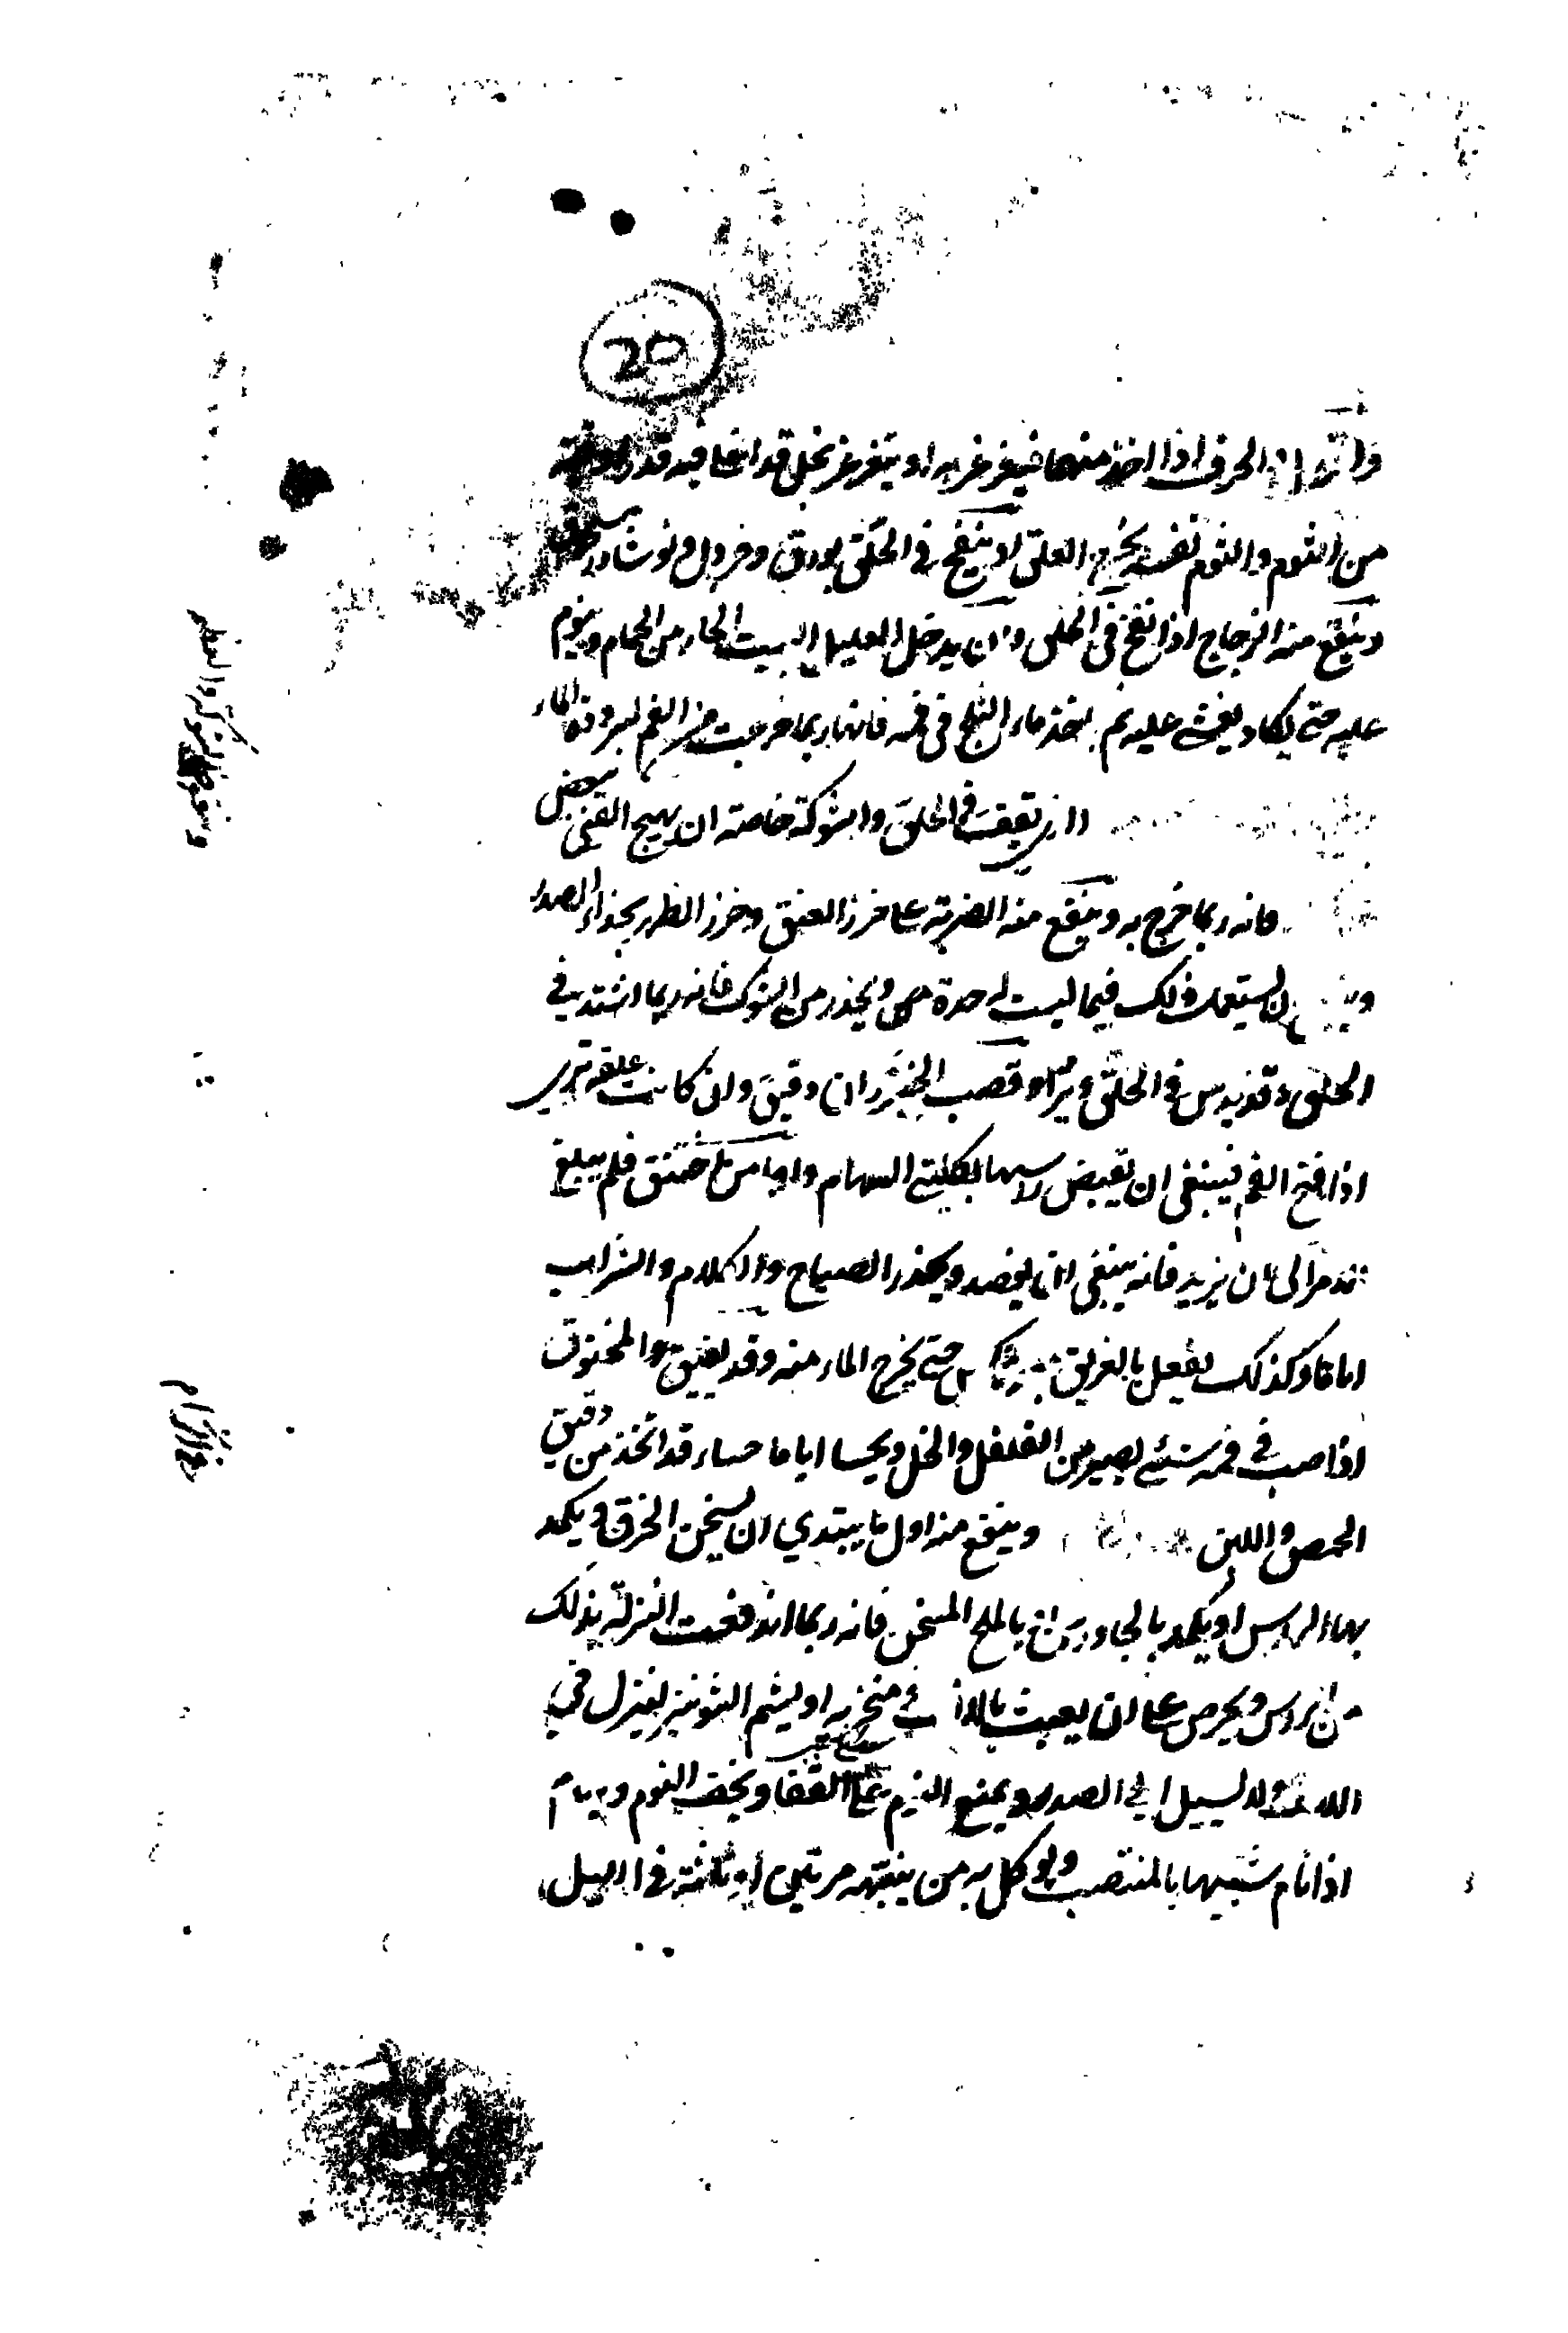 20
الحرف اذا اخذ منها فيغرغر به او يتغرغر بخل قد انحل فيه قدر
من الثوم والثوم نفسه يخرج العلق او ينفخ في الحلق بورق وخردل ونوشادر
وينفع منه الزجاج اذا نفخ في الحلق وان يدخل العليل البيت الحار من الحمام وينوم
عليه حتى يكاد يغشى عليه ثم ياخذ ماء الثلج في فمه فانها ربما خرجت من الفم لبرودة الماء
تقف في الحلق والشوكة خاصة ان يهيج القئ بعض
فانه ربما خرج به وينفع منه الضربة على خرز العنق وخرز الظهر بحذاء الصدر
ان يستعمل ذلك فيما ليست له حدة ويحذر من الشوك فانه ربما اشتد في
الحلق وقد يدس في الحلق وتر او قصب الخيزران دقيق وان كانت علقة ترى
اذا فتح الفم فينبغي ان تقبض راسها بكلبتي السهام واما من اختنق فلم يبلغ
ان يزيد فانه ينبغي ان يفصد ويحذر الصياح والكلام والشراب
اياما وكذلك يفعل بالغريق حتى يخرج الماء منه وقد يفيق المخنوق
اذا صب في فمه شئ يصير من الفلفل والخل ويحسا اياما حساء قد اتخذ من دقيق
الحمص واللبن وينفع منه اول ما يبتدي ان يسخن الخرق ويكمد
بها الراس او يكمد بالجاورس او بالملح المسخن فانه ربما اندفعت النزلة بذلك
من الراس ويحرص على ان يعبث في منخريه او يشم الشونيز لينزل في
ولا يسيل الى الصدر ويمنع النوم على القفا ويخفف النوم
اذا نام شبيها بالمنتصب ويوكل به من ينبهه مرتين او ثلثة في الليل